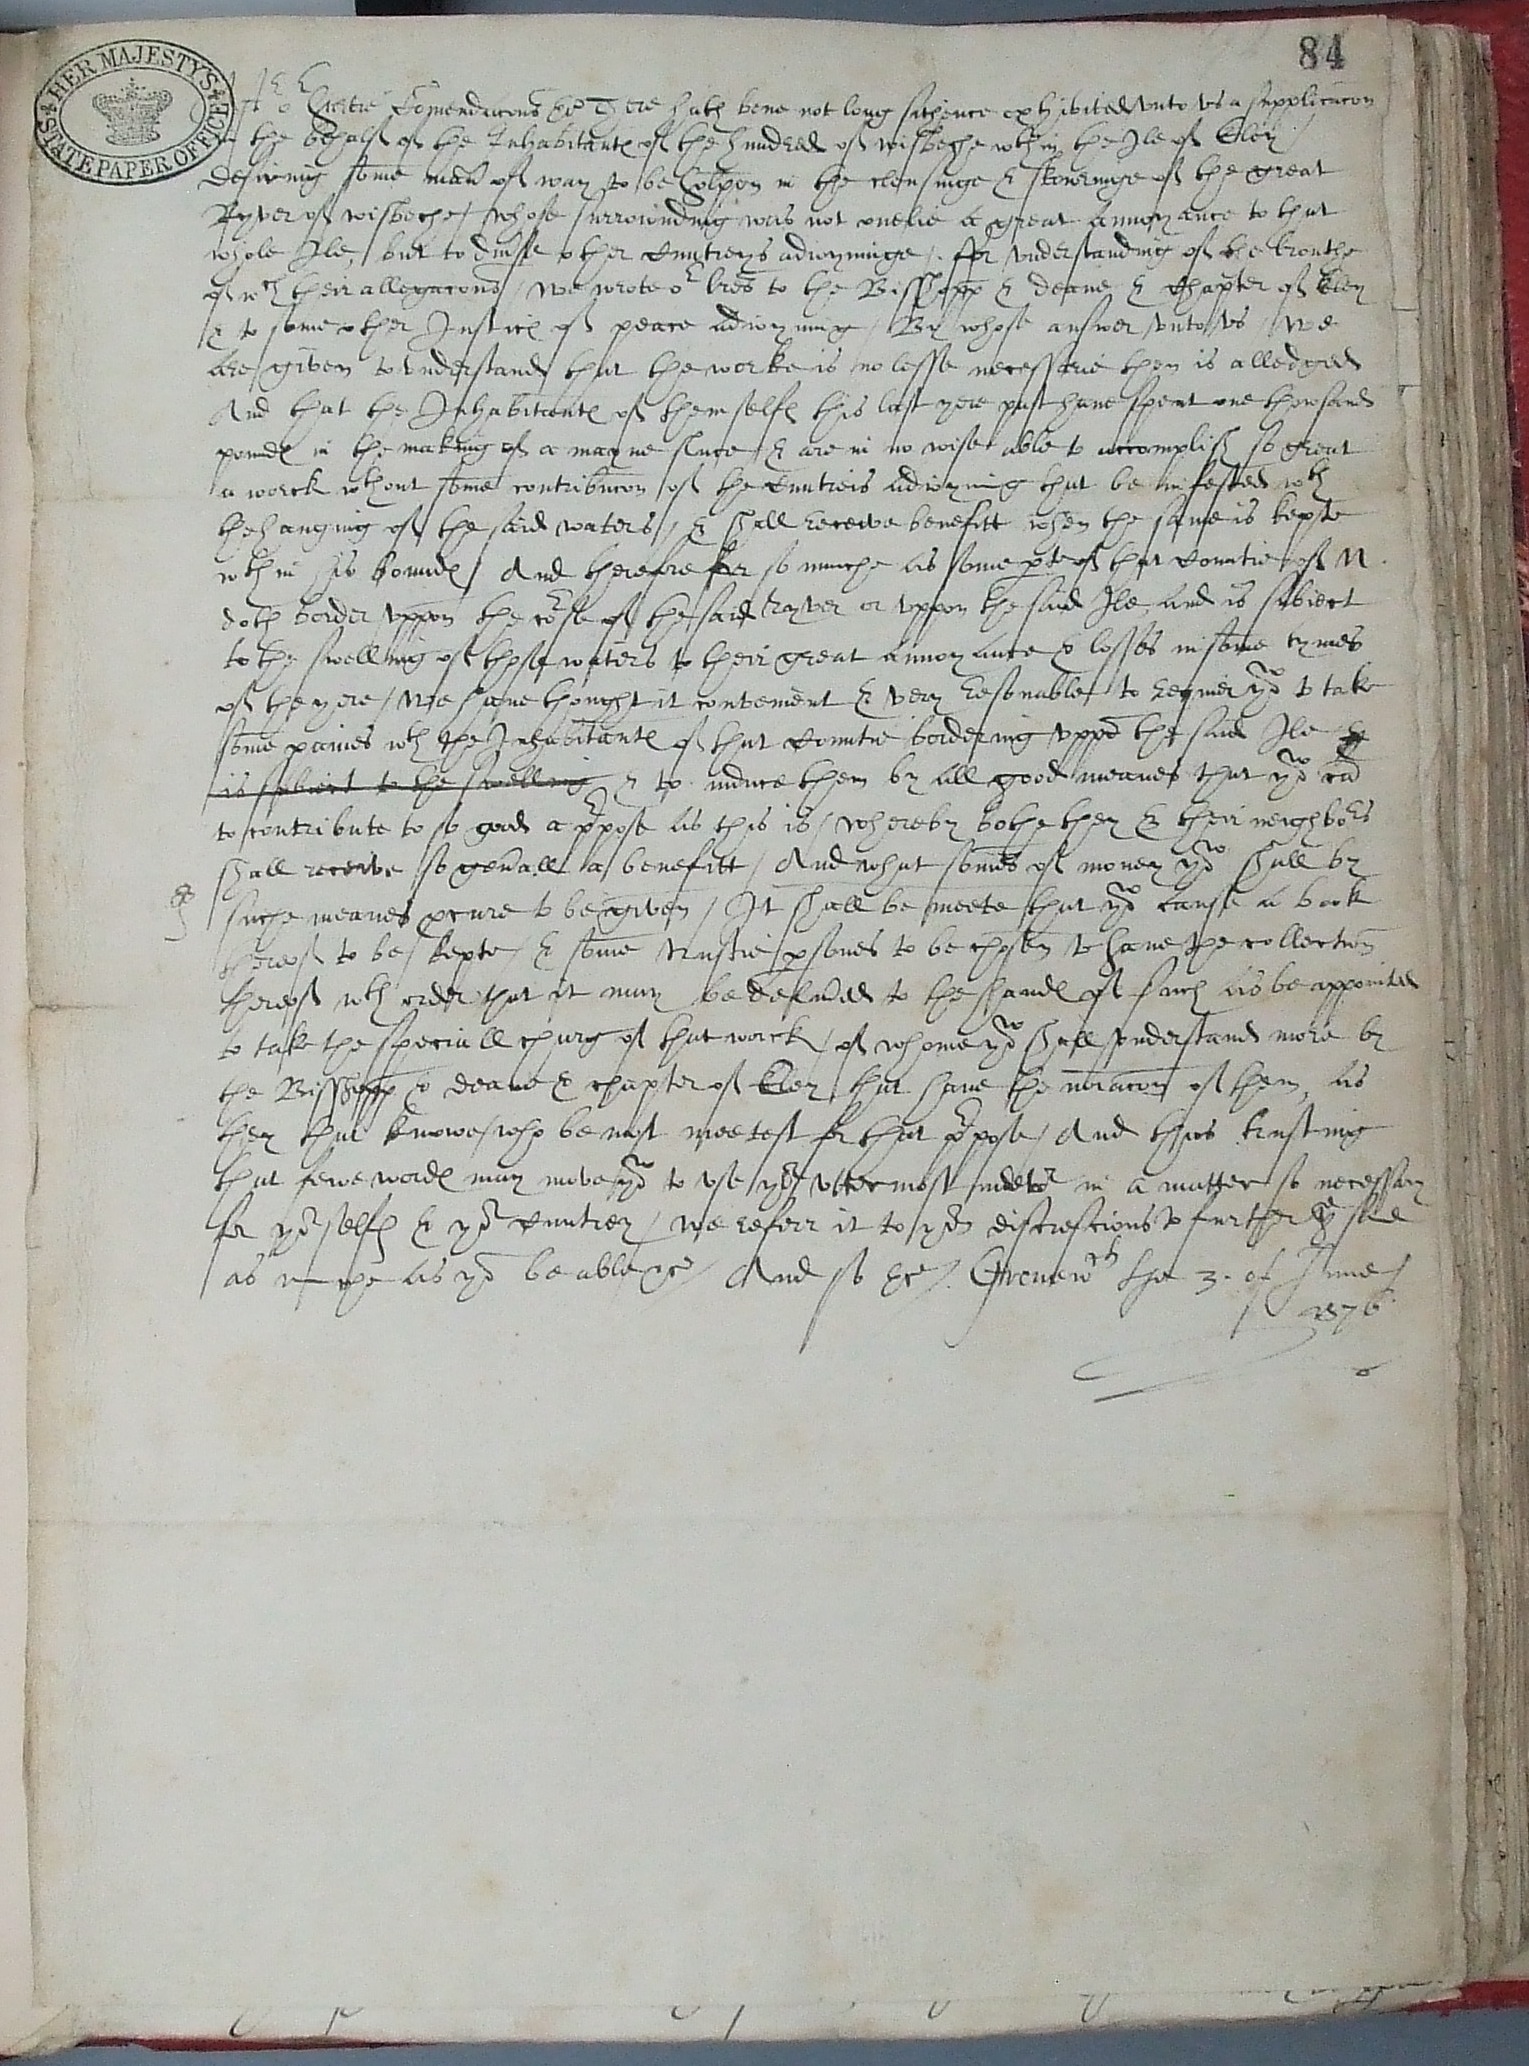 84
HER MAJESTY'S STATE PAPER OFFICE
hartie Comendacons &c There hath bene not long sithence exhibited vnto vs a supplicacon
the behalf of the Inhabitantes of the hundred of wisbeche wthin the Ile of Eley
desiring some maner of way to be holpen in the clensinge & skowringe of the great
Ryver of wisbeche / whose surrounding was not onelie a great annoyance to that
whole Ile, but to diuse other Cuntreys adioyninge / for vnderstanding of the trouthe
of wch their allegacons / we wrote or lres to the Bisshopp & deane & Chapter of Eley
& to some other Justices of peace adioyning / By whose answer vnto vs / we
are given to vnderstand that the worke is no lesse necessarie then is alledged
And that the Inhabitantes of themselfes this last yere past haue spent one thowsand
poundes in the making of a mayne sluce & are in no wise able to accomplish so great
a worck wthout some contribucon of the Cuntreis adioyning that be infested wth
the hanging of the said waters / & shall receive benefitt when the same is kepte
wth in his boundes / And therefore for so muche as some pte of that Countie of N.
doth border vppon the corse of the said ryver or vppon the said Ile and is subiect
to the swelling of those waters to their great annoyance & losses in some tymes
of the yere / We haue thought it convenient & very resonable to requier you to take
some paines wth the Inhabitantes of that Countie bordering vppon the said Ile
is subiect to the swelling & to induce them by all good meanes that you can
to contribute to so good a prpose as this is / whereby bothe they & their neighbors
shall receive so genall a benefitt / And what somes of money you shall by
suche meanes pcure to be given / It shall be meete that you cause a book
thereof to be kepte / & some trustie psones to be chosen to haue the collection
thereof wth order that it may be deliuered to the handes of such as be appointed
to take the speciall charg of that worck / of whome you shall vnderstand more by
the Bisshopp & deane & chapter of Eley that haue the noiacon of them, as
they that knowe who be most meetest for that prpose / And thus trusting
that fewe wordes may move you to vse yor vttermost indevor in a matter so necessary
for yor selfes & yor Cuntrey / we referr it to yor discressions to further the same
as muche as you be able &c / And so &c /. Grenewch the 3. of June
1576